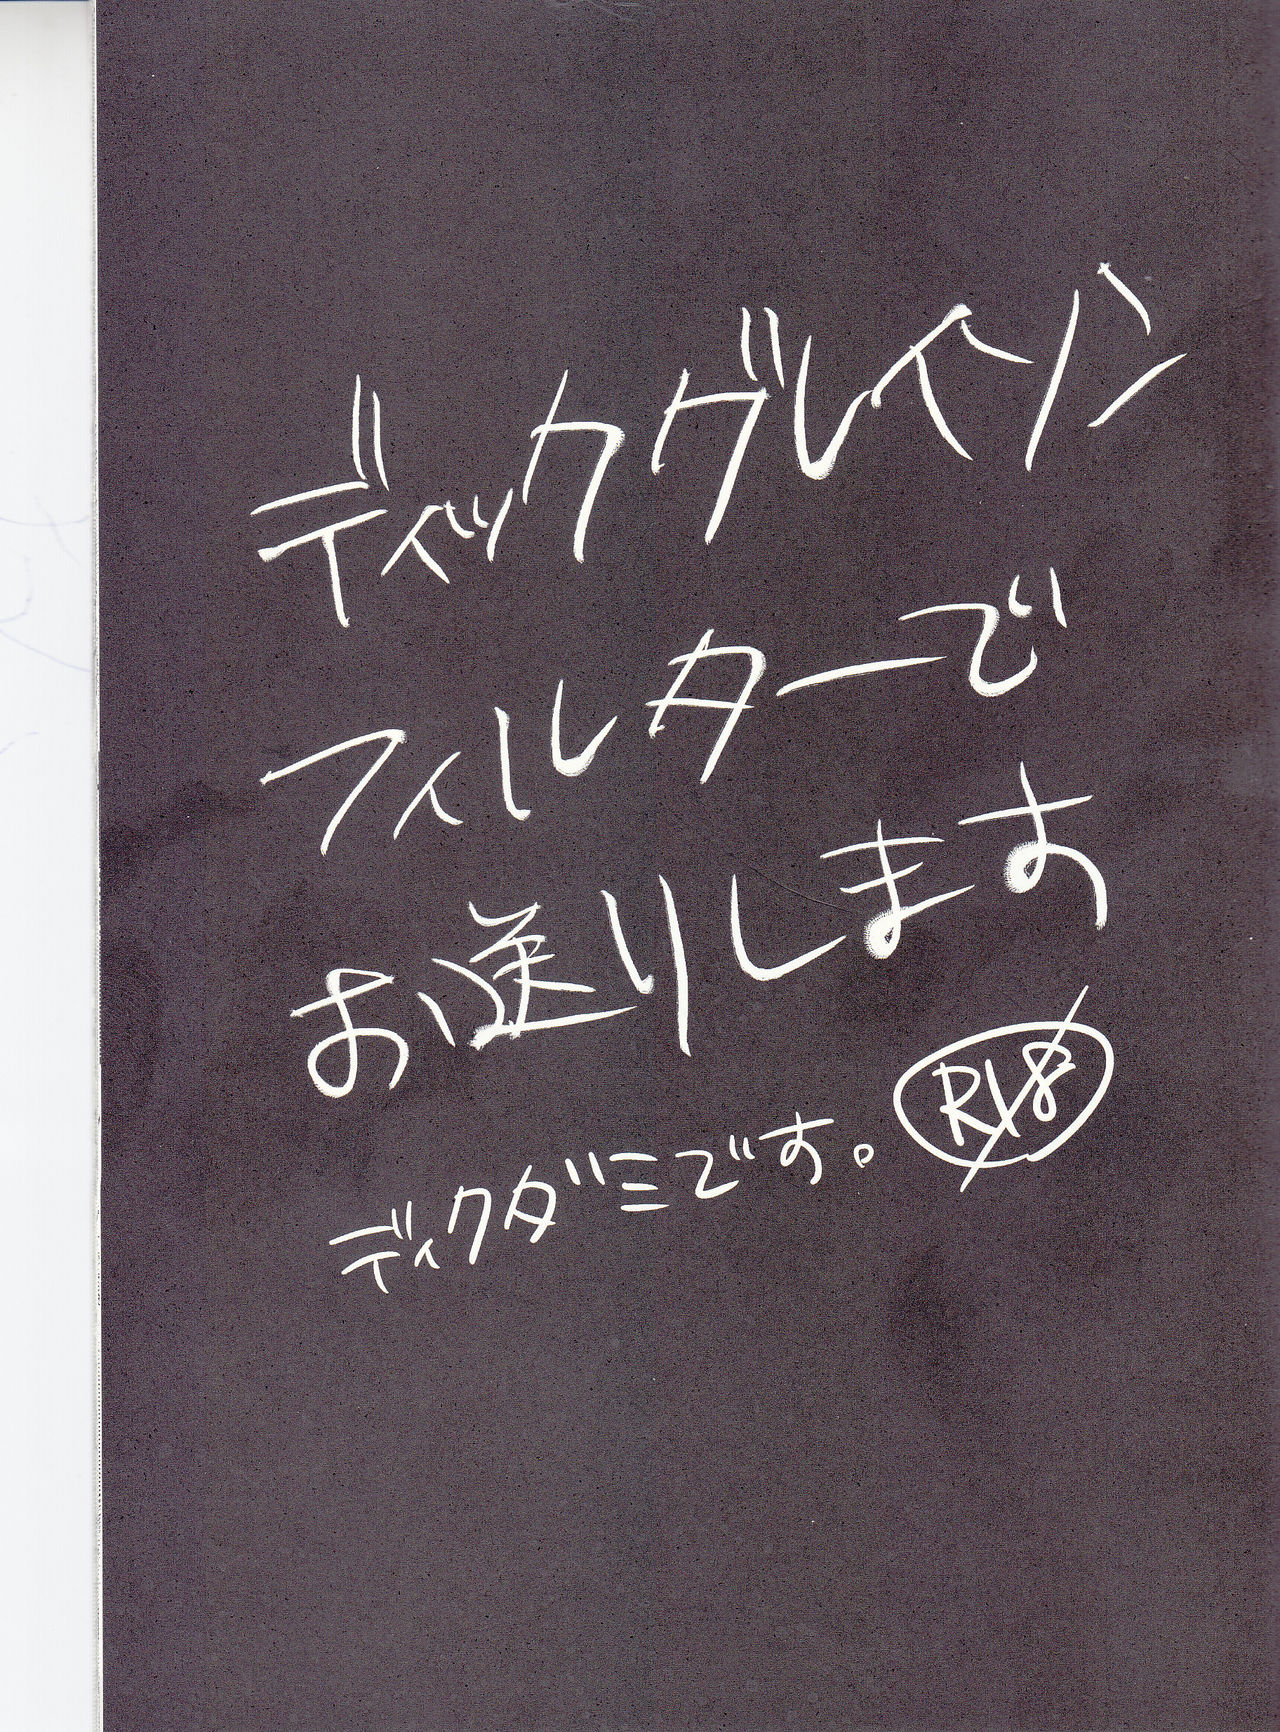 ディックグレイソン
フィルターで
お送りします
R18
ディクダミです。